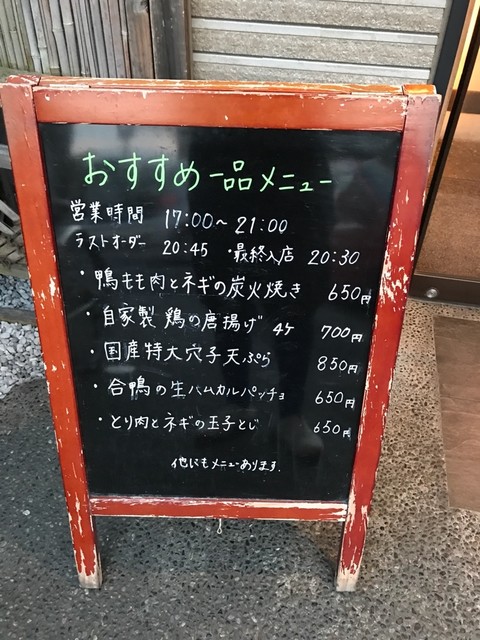 おすすめ一品メニュー
営業時間 17:00〜21:00
ラストオーダー 20:45 ・最終入店 20:30
・鴨もも肉とネギの炭火焼き 650円
・自家製 鶏の唐揚げ 4ケ 700円
・国産特大穴子天ぷら 850円
・合鴨の生ハムカルパッチョ 650円
・とり肉とネギの玉子とじ 650円
他にもメニューあります.